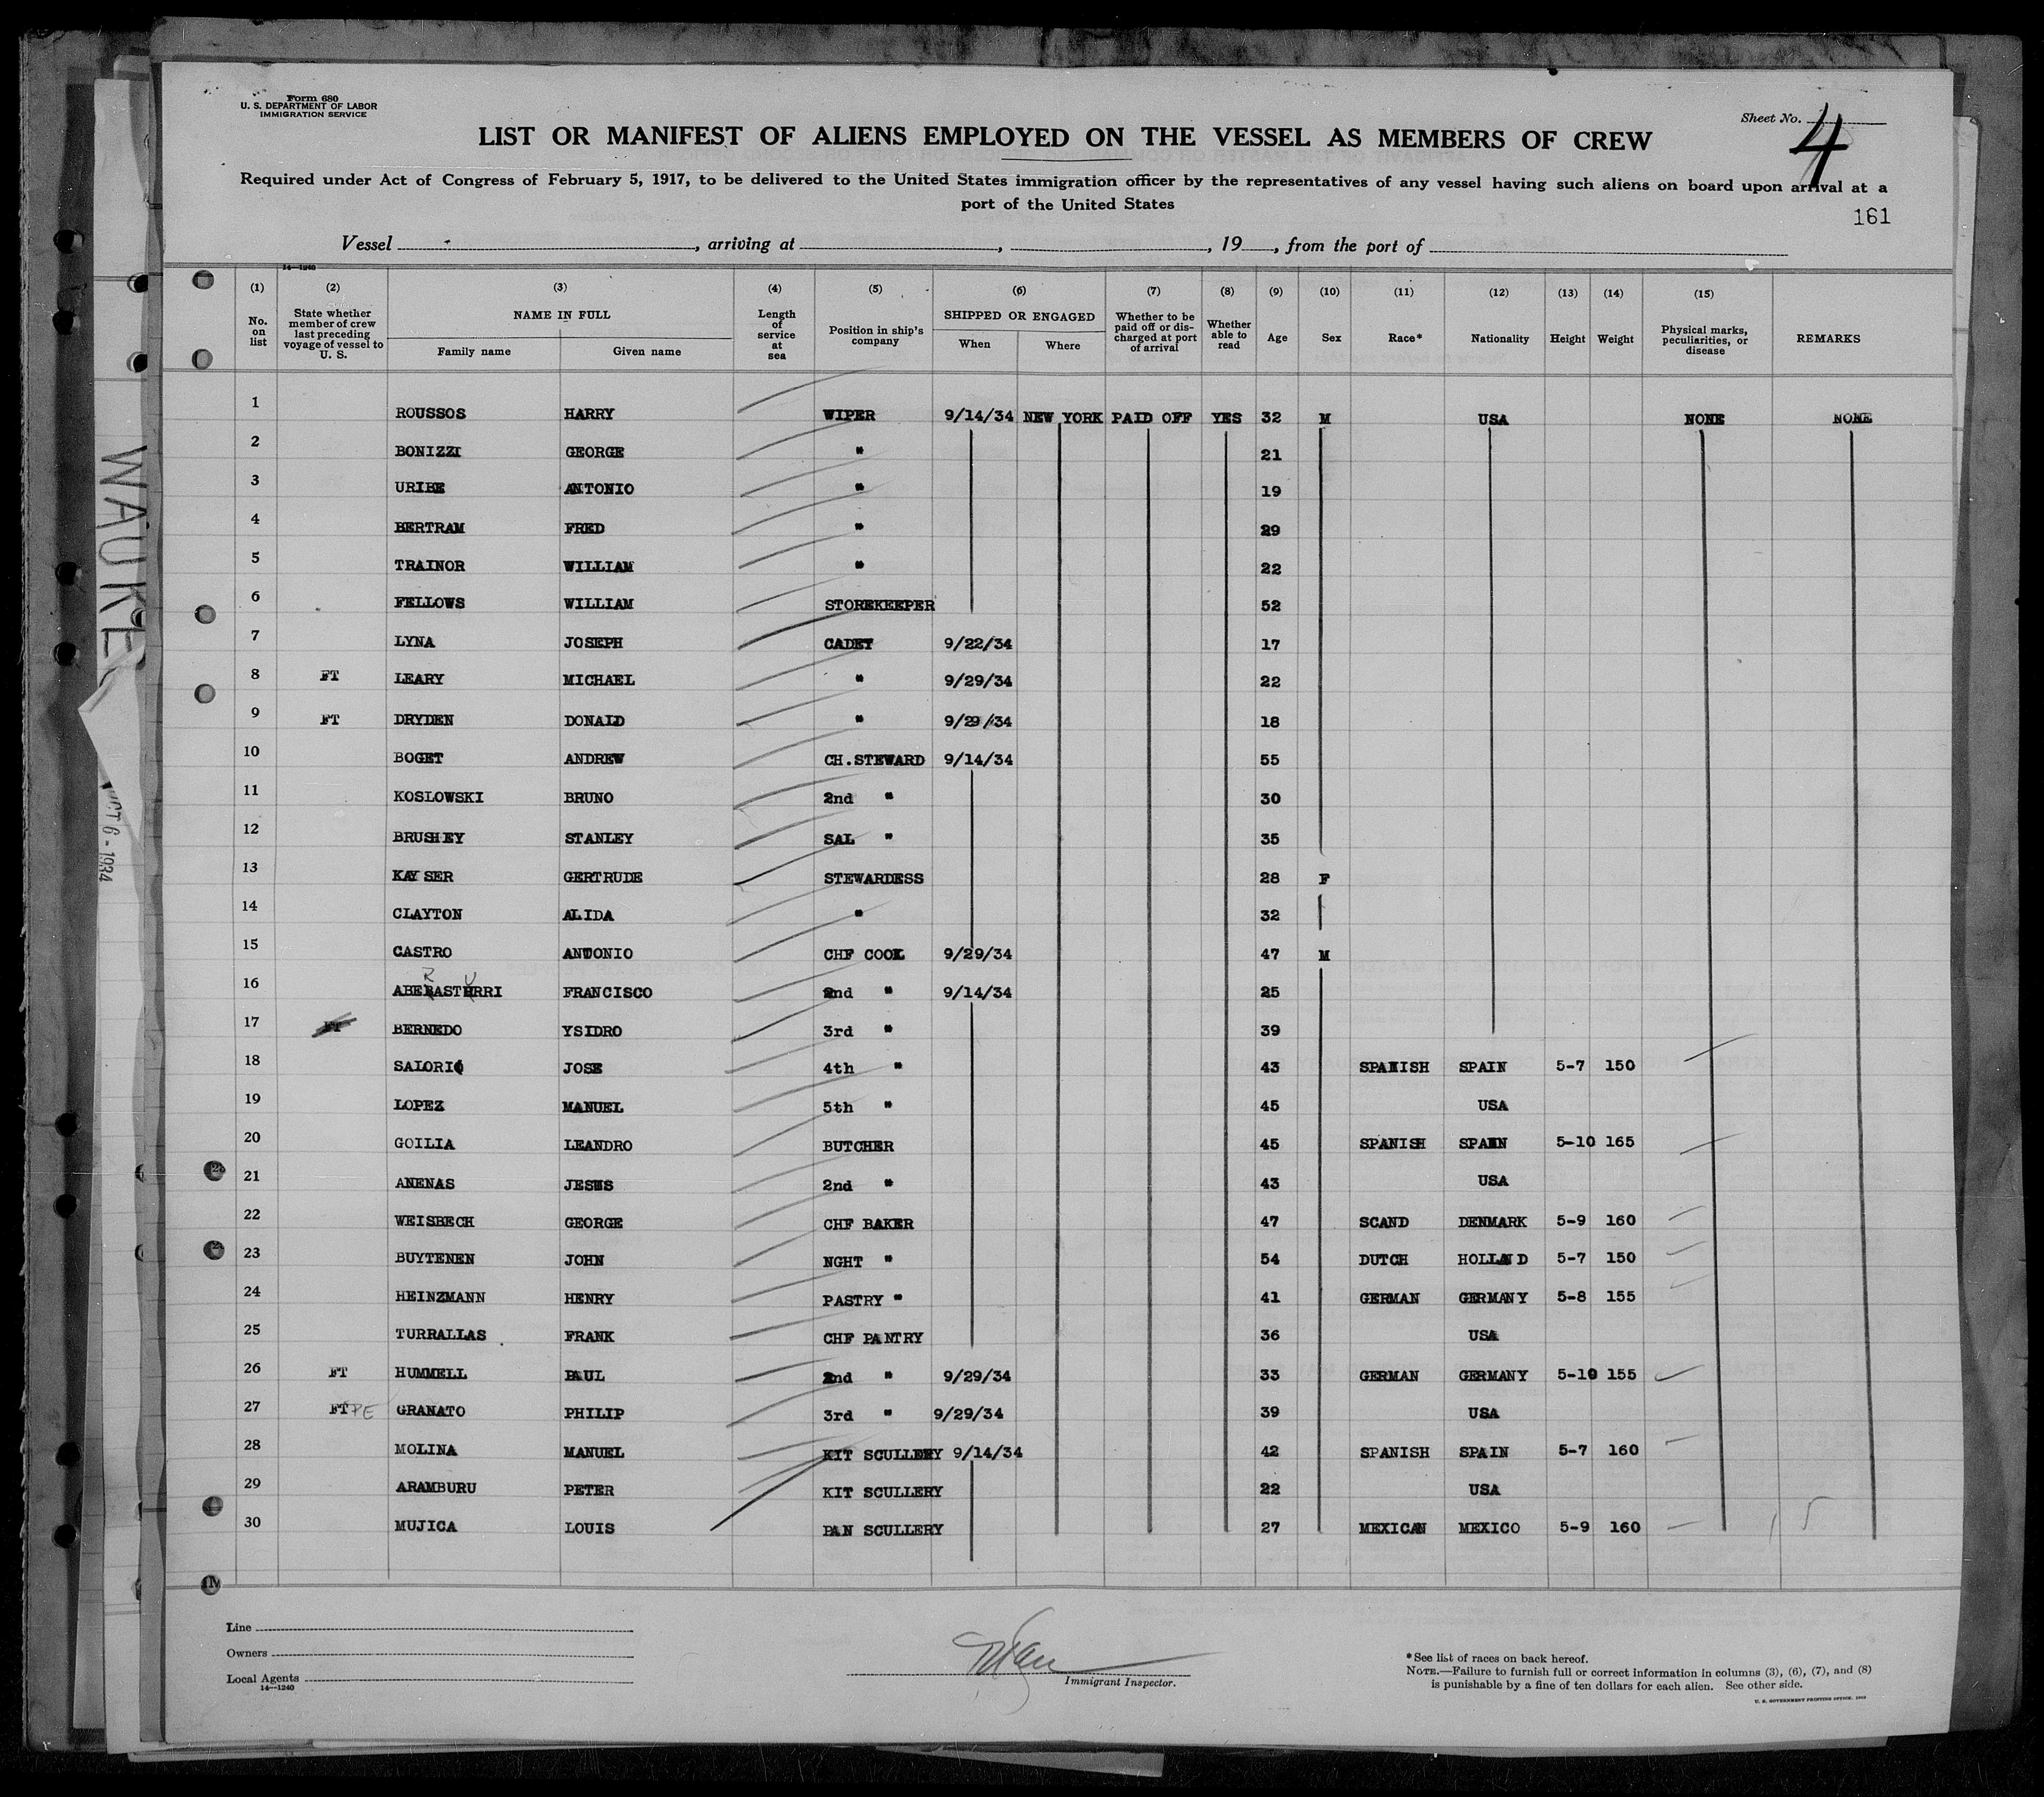 Form 680
U. S. DEPARTMENT OF LABOR
IMMIGRATION SERVICE
Sheet No. 4
LIST OR MANIFEST OF ALIENS EMPLOYED ON THE VESSEL AS MEMBERS OF CREW
Required under Act of Congress of February 5, 1917, to be delivered to the United States immigration officer by the representatives of any vessel having such aliens on board upon arrival at a
port of the United States
161
Vessel , arriving at , , 19 , from the port of
14—1240
(1) (2) (3) (4) (5) (6) (7) (8) (9) (10) (11) (12) (13) (14) (15)
No. on list State whether member of crew last preceding voyage of vessel to U. S. NAME IN FULL Family name Given name Length of service at sea Position in ship's company SHIPPED OR ENGAGED When Where Whether to be paid off or discharged at port of arrival Whether able to read Age Sex Race* Nationality Height Weight Physical marks, peculiarities, or disease REMARKS
1 ROUSSOS HARRY WIPER 9/14/34 NEW YORK PAID OFF YES 32 M USA NONE NONE
2 BONIZZI GEORGE " 21
3 URIBE ANTONIO " 19
4 BERTRAM FRED " 29
5 TRAINOR WILLIAM " 22
6 FELLOWS WILLIAM STOREKEEPER 52
7 LYNA JOSEPH CADET 9/22/34 17
8 FT LEARY MICHAEL " 9/29/34 22
9 FT DRYDEN DONALD " 9/29/34 18
10 BOGET ANDREW CH.STEWARD 9/14/34 55
11 KOSLOWSKI BRUNO 2nd " 30
12 BRUSHEY STANLEY SAL " 35
13 KAYSER GERTRUDE STEWARDESS 28 F
14 CLAYTON ALIDA " 32
15 CASTRO ANTONIO CHF COOK 9/29/34 47 M
16 ABERASTURRI FRANCISCO 2nd " 9/14/34 25
17 FT BERNEDO YSIDRO 3rd " 39
18 SALORIO JOSE 4th " 43 SPANISH SPAIN 5-7 150
19 LOPEZ MANUEL 5th " 45 USA
20 GOILIA LEANDRO BUTCHER 45 SPANISH SPAIN 5-10 165
21 ANENAS JESUS 2nd " 43 USA
22 WEISBECH GEORGE CHF BAKER 47 SCAND DENMARK 5-9 160
23 BUYTENEN JOHN NGHT " 54 DUTCH HOLLAND 5-7 150
24 HEINZMANN HENRY PASTRY " 41 GERMAN GERMANY 5-8 155
25 TURRALLAS FRANK CHF PANTRY 36 USA
26 FT HUMMELL PAUL 2nd " 9/29/34 33 GERMAN GERMANY 5-10 155
27 FT PE GRANATO PHILIP 3rd " 9/29/34 39 USA
28 MOLINA MANUEL KIT SCULLERY 9/14/34 42 SPANISH SPAIN 5-7 160
29 ARAMBURU PETER KIT SCULLERY 22 USA
30 MUJICA LOUIS PAN SCULLERY 27 MEXICAN MEXICO 5-9 160
Line
Owners
Local Agents
14—1240
Immigrant Inspector.
*See list of races on back hereof.
NOTE.—Failure to furnish full or correct information in columns (3), (6), (7), and (8)
is punishable by a fine of ten dollars for each alien. See other side.
WAUKE
OCT 6 - 1934